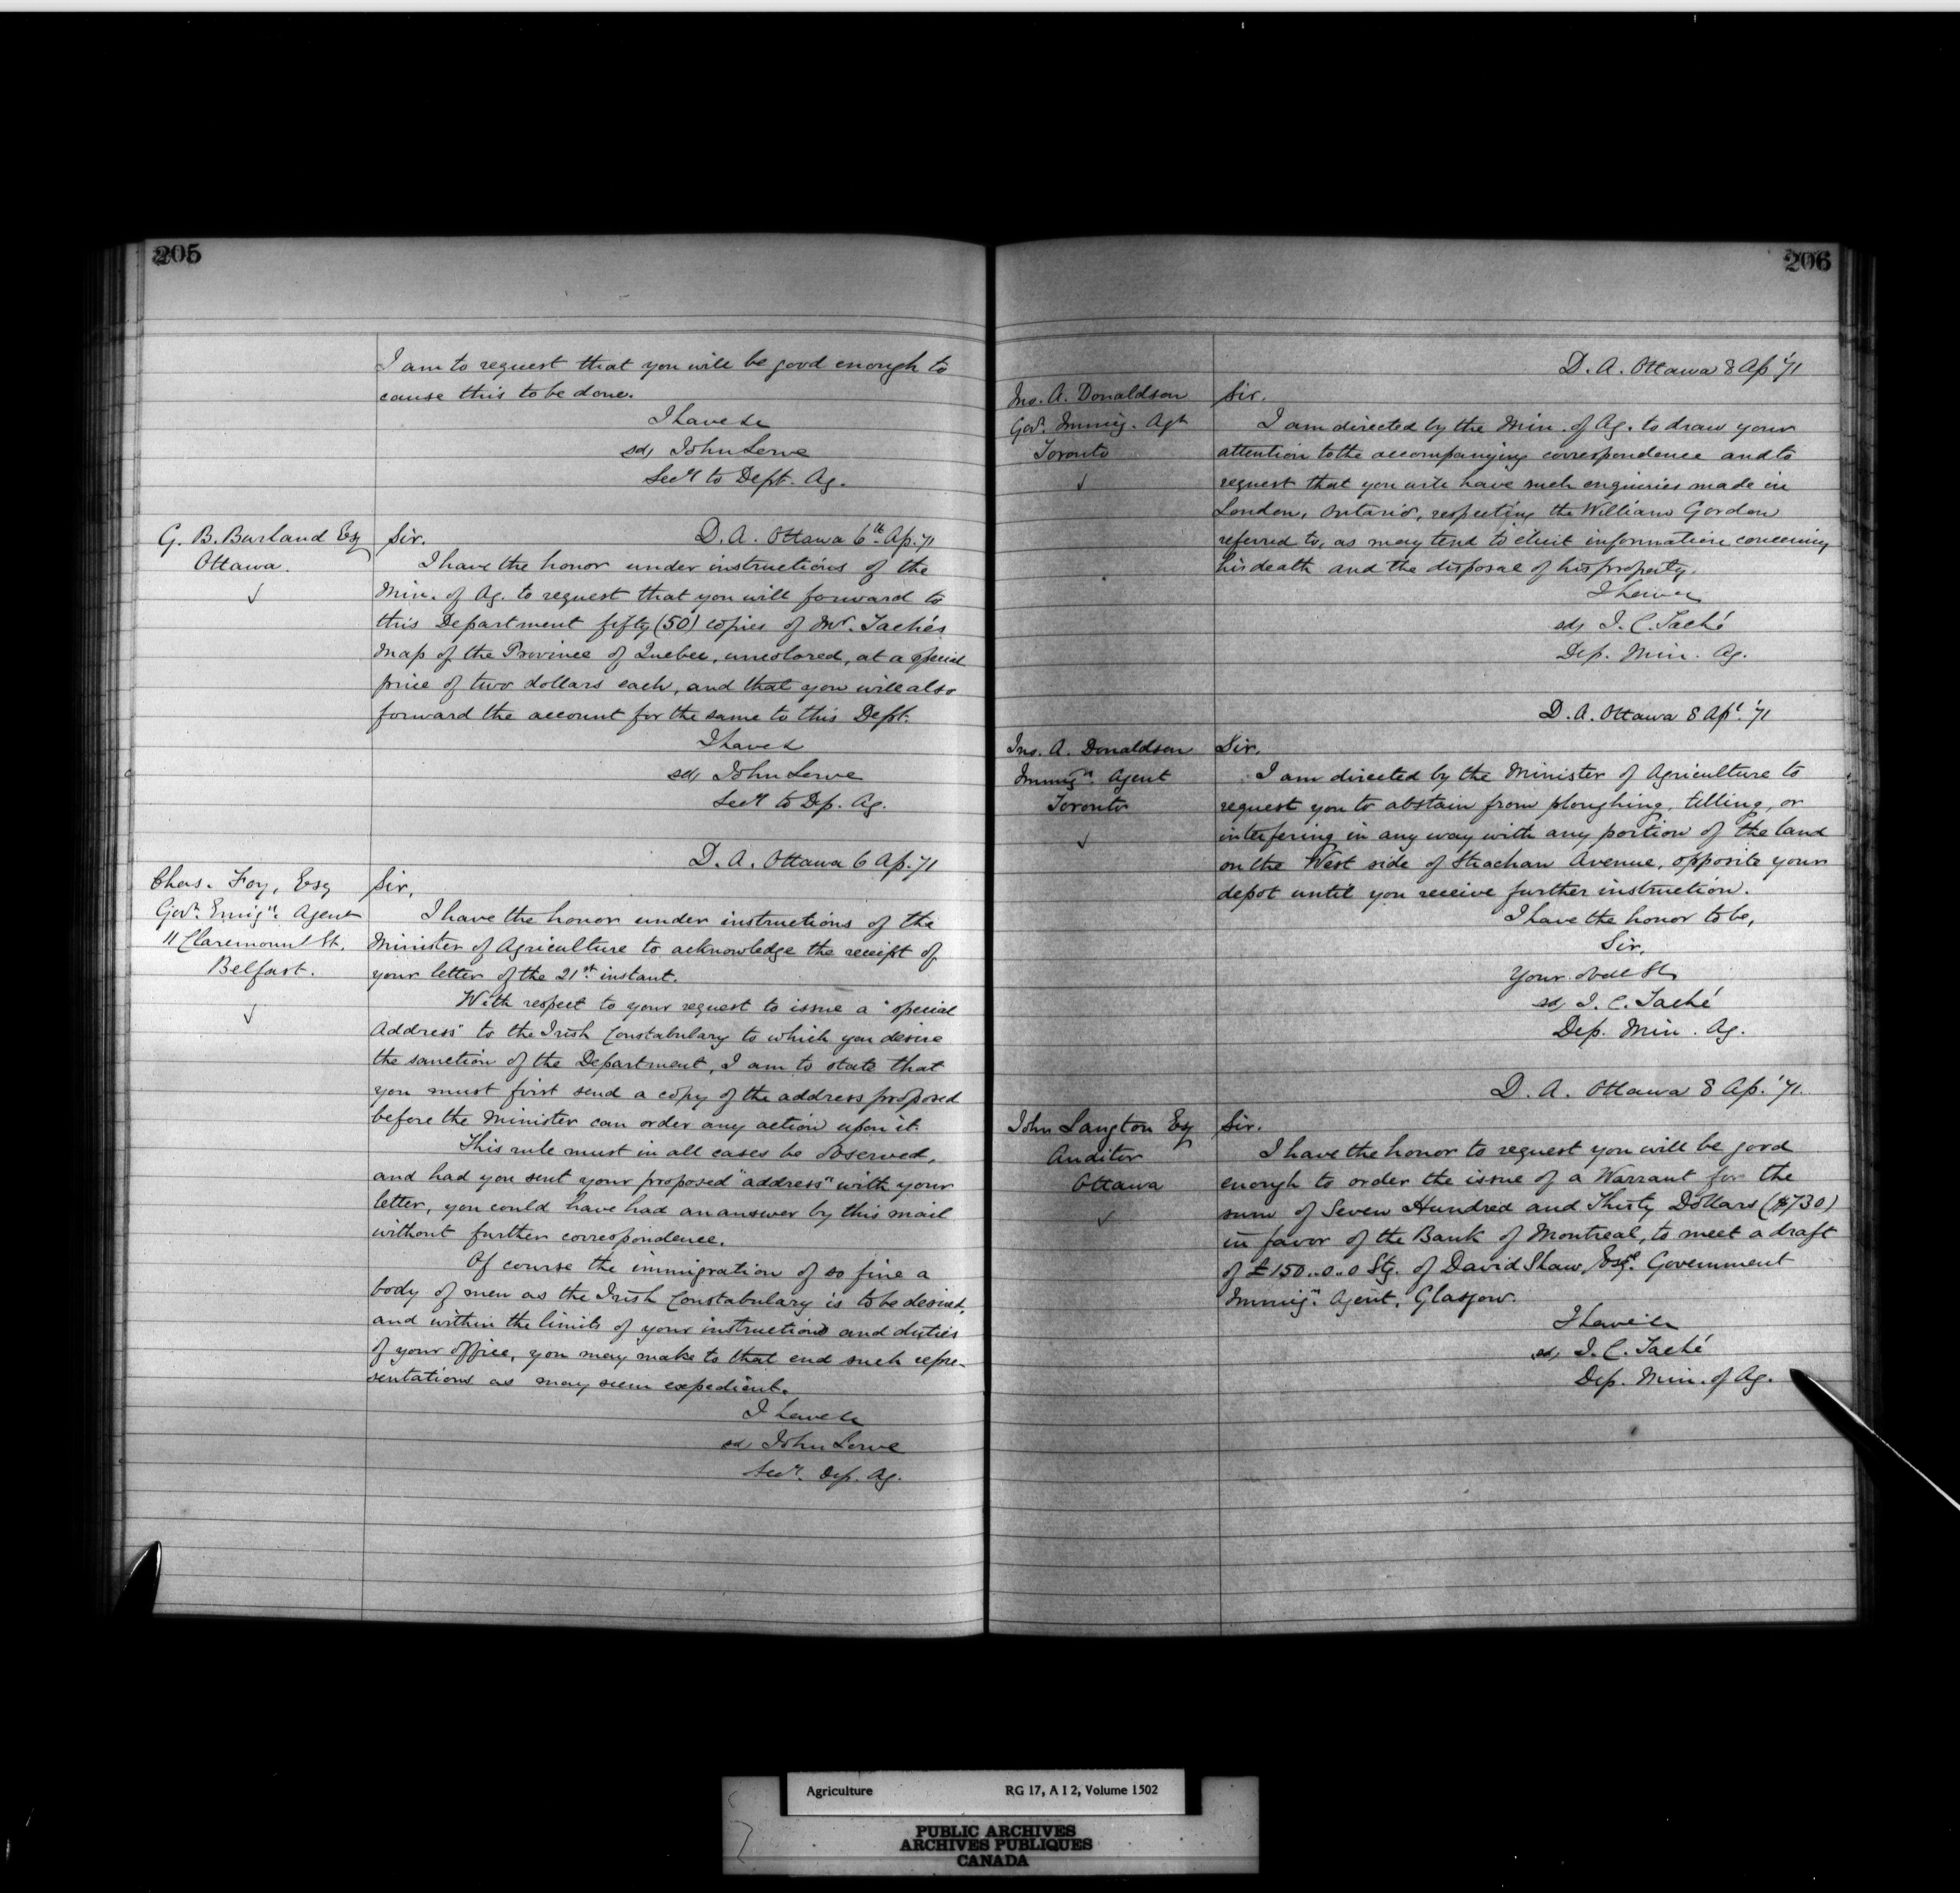 205
I am to request that you will be good enough to
cause this to be done.
I have &c
sd, John Lowe
Secy to Dept. Ag.
G. B. Burland Esq
Ottawa.
Sir. D. A. Ottawa 6th Ap. 71
I have the honor under instructions of the
Min. of Ag. to request that you will forward to
this Department fifty (50) copies of Mr. Taché's
Map of the Province of Quebec, uncolored, at a special
price of two dollars each, and that you will also
forward the account for the same to this Dept.
I have &
sd, John Lowe
Secy to Dp. Ag.
D. A. Ottawa 6 Ap. 71
Chas. Foy, Esq
Govt. Emign. Agent
11 Claremount St.
Belfast.
Sir,
I have the honor under instructions of the
Minister of Agriculture to acknowledge the receipt of
your letter of the 21st. instant.
With respect to your request to issue a "special
Address" to the Irish Constabulary to which you desire
the sanction of the Department, I am to state that
you must first send a copy of the address proposed
before the Minister can order any action upon it.
This rule must in all cases be observed,
and had you sent your proposed "address" with your
letter, you could have had an answer by this mail
without further correspondence.
Of course the immigration of so fine a
body of men as the Irish Constabulary is to be desired,
and within the limits of your instructions and duties
of your office, you may make to that end such repre-
sentations as may seem expedient.
I have &c
sd, John Lowe
Secy. Dep. Ag.
206
D. A. Ottawa 8 Ap '71
Jno. A. Donaldson
Govt. Immig. Agt
Toronto
Sir.
I am directed by the Min. of Ag. to draw your
attention to the accompanying correspondence and to
request that you will have such enquiries made in
London, Ontario, respecting the William Gordon
referred to, as may tend to elicit information concerning
his death and the disposal of his property.
I have &
sd, J. C. Taché
Dep. Min. Ag.
D. A. Ottawa 8 Apl. '71
Jno. A. Donaldson
Immign. Agent
Toronto
Sir,
I am directed by the Minister of Agriculture to
request you to abstain from ploughing, tilling, or
interfering in any way with any portion of the land
on the West side of Strachan Avenue, opposite your
depot until you receive further instruction.
I have the honor to be,
Sir,
Your obdt St
sd, J. C. Taché
Dep. Min. Ag.
D. A. Ottawa 8 Ap. '71.
John Langton Esq
Auditor
Ottawa
Sir.
I have the honor to request you will be good
enough to order the issue of a Warrant for the
sum of Seven Hundred and Thirty Dollars ($730)
in favor of the Bank of Montreal, to meet a draft
of £150..0..0 Stg. of David Shaw, Esqr. Government
Immign. Agent, Glasgow.
I have &c
sd, J. C. Taché
Dep. Min. of Ag.
Agriculture RG 17, A I 2, Volume 1502
PUBLIC ARCHIVES
ARCHIVES PUBLIQUES
CANADA